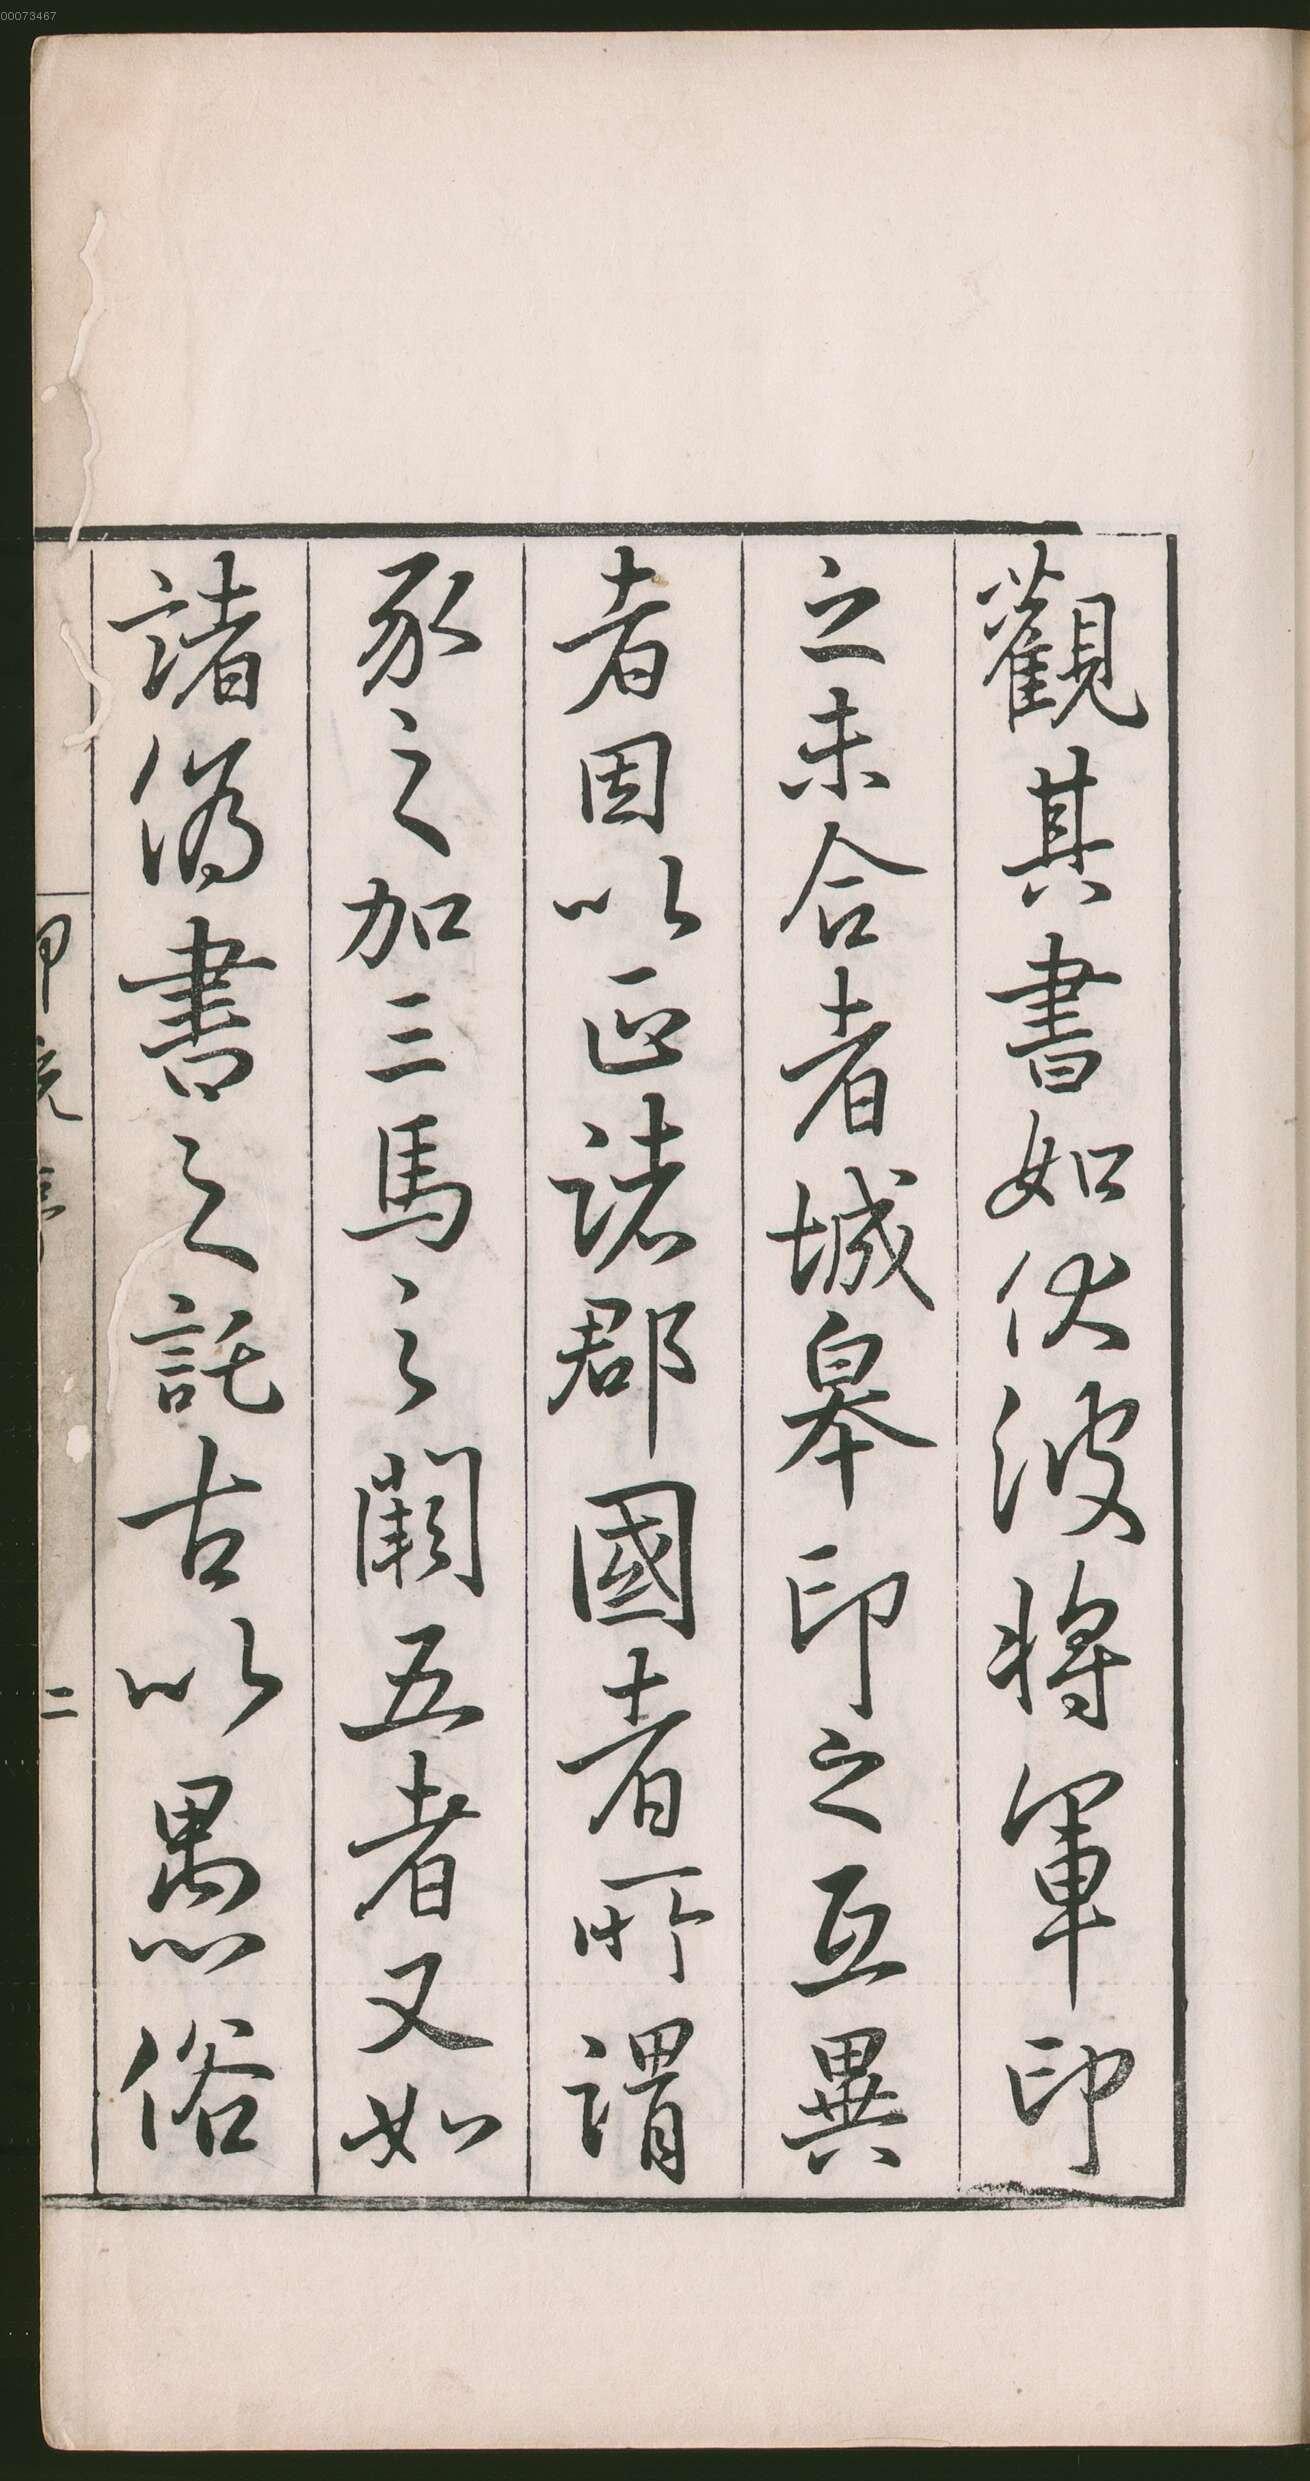 00073467
觀其書如伏波將軍印
之未合者城皋印之互異
者因以正諸郡國者所謂
豕之加三馬之闕五者又如
諸偽書之託古以愚俗
二